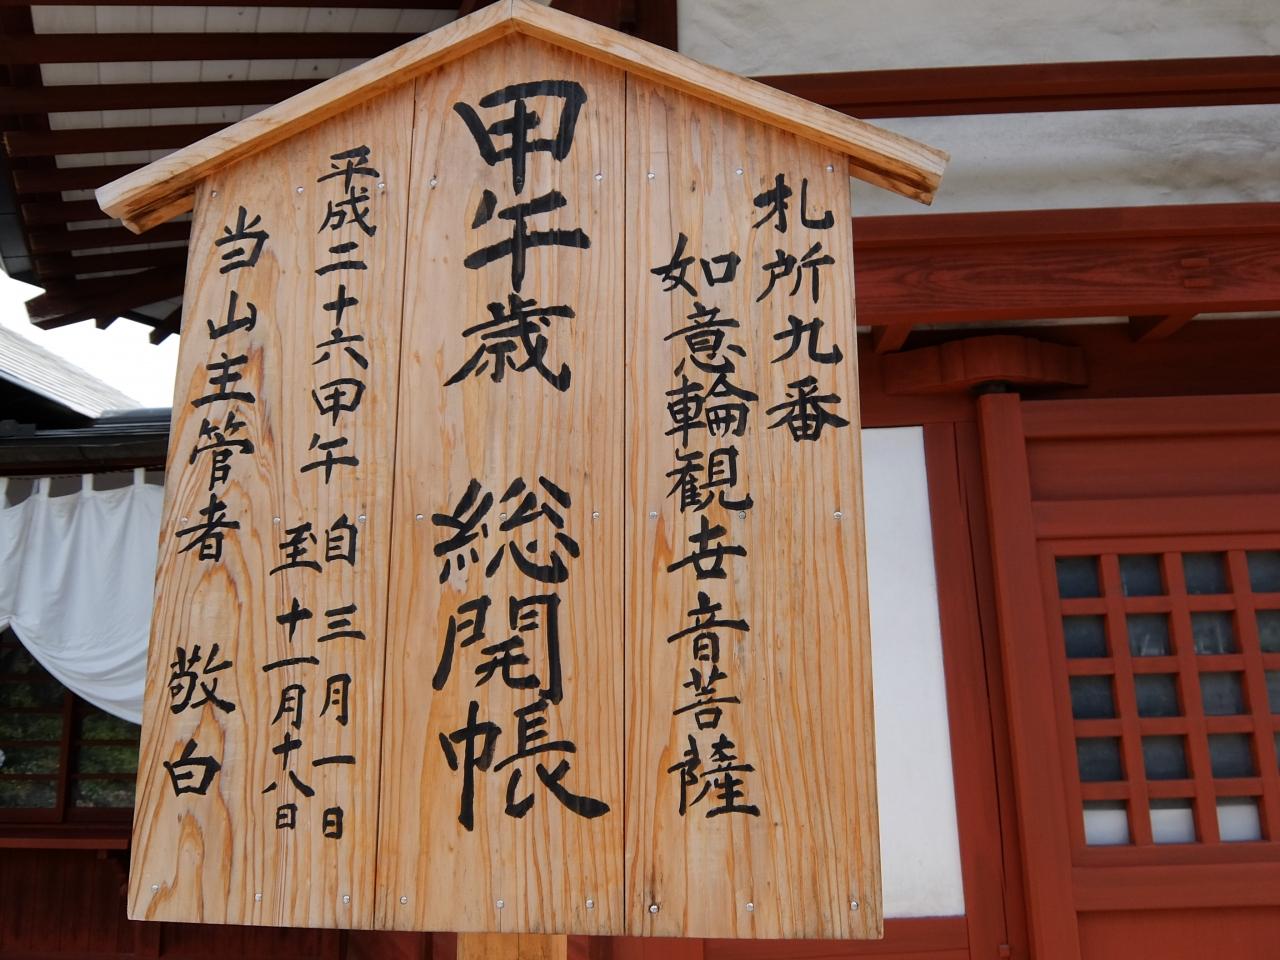 札所九番
如意輪観世音菩薩
甲午歳 総開帳
平成二十六甲午 自 三月一日
至 十一月十八日
当山主管者 敬白